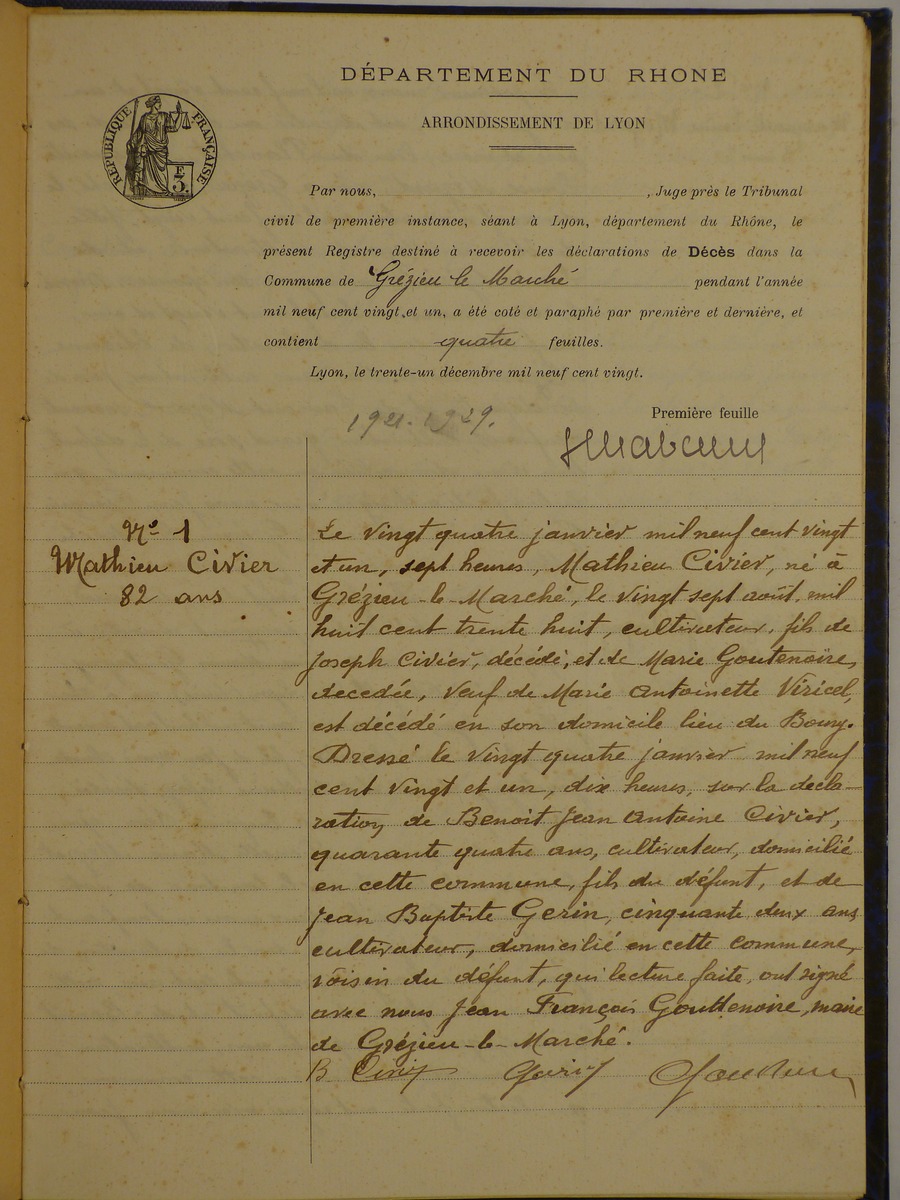 DÉPARTEMENT DU RHONE
ARRONDISSEMENT DE LYON
RÉPUBLIQUE FRANÇAISE
E
3.
Par nous, , Juge près le Tribunal
civil de première instance, séant à Lyon, département du Rhône, le
présent Registre destiné à recevoir les déclarations de Décès dans la
Commune de Grézieu le Marché pendant l'année
mil neuf cent vingt et un, a été coté et paraphé par première et dernière, et
contient quatre feuilles.
Lyon, le trente-un décembre mil neuf cent vingt.
Première feuille
1921-1929.
N° 1
Mathieu Civier
82 ans
Le vingt quatre janvier mil neuf cent vingt
et un, sept heures, Mathieu Civier, né à
Grézieu-le-Marché, le vingt sept août, mil
huit cent trente huit, cultivateur, fils de
Joseph Civier, décédé, et de Marie Goutenoire,
decedée, veuf de Marie Antoinette Viricel,
est décédé en son domicile lieu du Bourg.
Dressé le vingt quatre janvier mil neuf
cent vingt et un, dix heures, sur la decla-
ration de Benoit Jean Antoine Civier,
quarante quatre ans, cultivateur, domicilié
en cette commune, fils du défunt, et de
Jean Baptiste Gerin, cinquante deux ans
cultivateur, domicilié en cette commune,
voisin du défunt, qui lecture faite, ont signé
avec nous Jean François Gouttenoire, maire
de Grézieu-le-Marché.
B